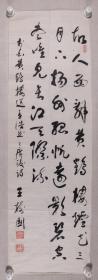 故人西辭黄鶴樓煙花三
月下揚州孤帆遠影碧空
盡唯見長江天際流
黄鶴樓送孟浩然之廣陵詩 王